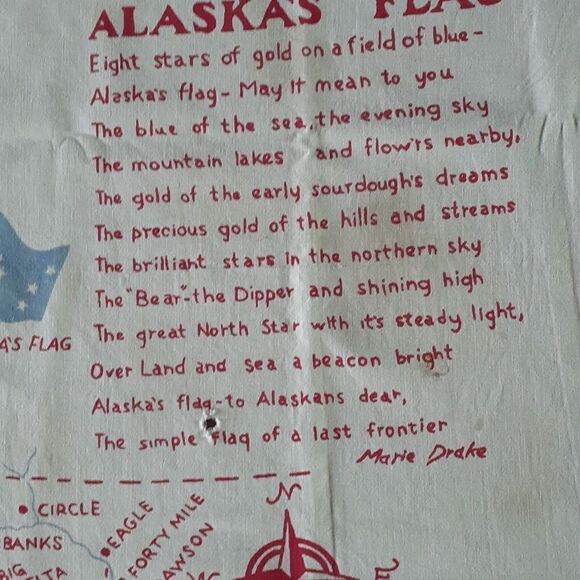 ALASKA'S FLAG
Eight stars of gold on a field of blue-
Alaska's flag- May it mean to you
The blue of the sea, the evening sky
The mountain lakes and flow'rs nearby,
The gold of the early sourdough's dreams
The precious gold of the hills and streams
The brilliant stars in the northern sky
The "Bear"-the Dipper and shining high
The great North Star with it's steady light,
Over Land and sea a beacon bright
Alaska's flag-to Alaskans dear,
The simple Flag of a last frontier
Marie Drake
A'S FLAG
N
CIRCLE
EAGLE
FORTY MILE
AWSON
BANKS
BIG
LTA